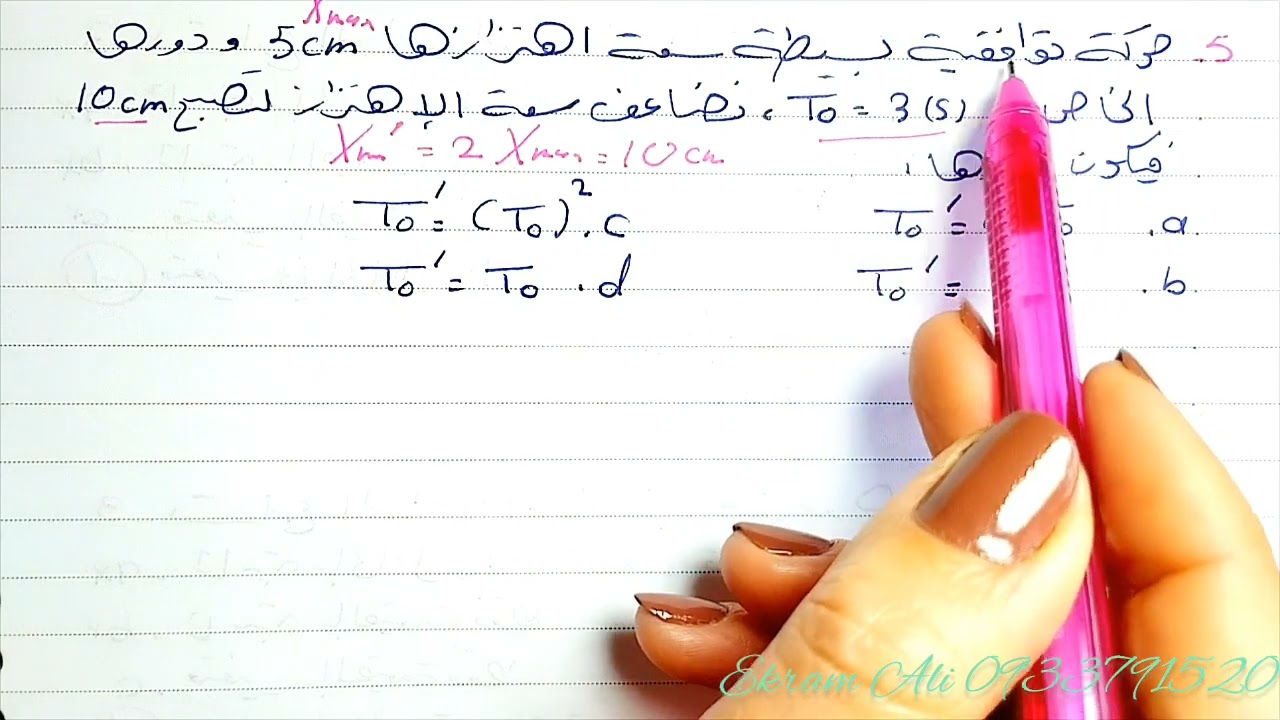 Xmax
5. حركة توافقية بسيطة سعة اهتزازها 5cm و دورها
الخاص T₀ = 3(s) ، نضاعف سعة الاهتزاز لتصبح 10cm
Xm' = 2 Xmax = 10cm
فيكون
a. T₀' =
c. T₀' = (T₀)²
b. T₀' =
d. T₀' = T₀
Ekram Ali 0933791520